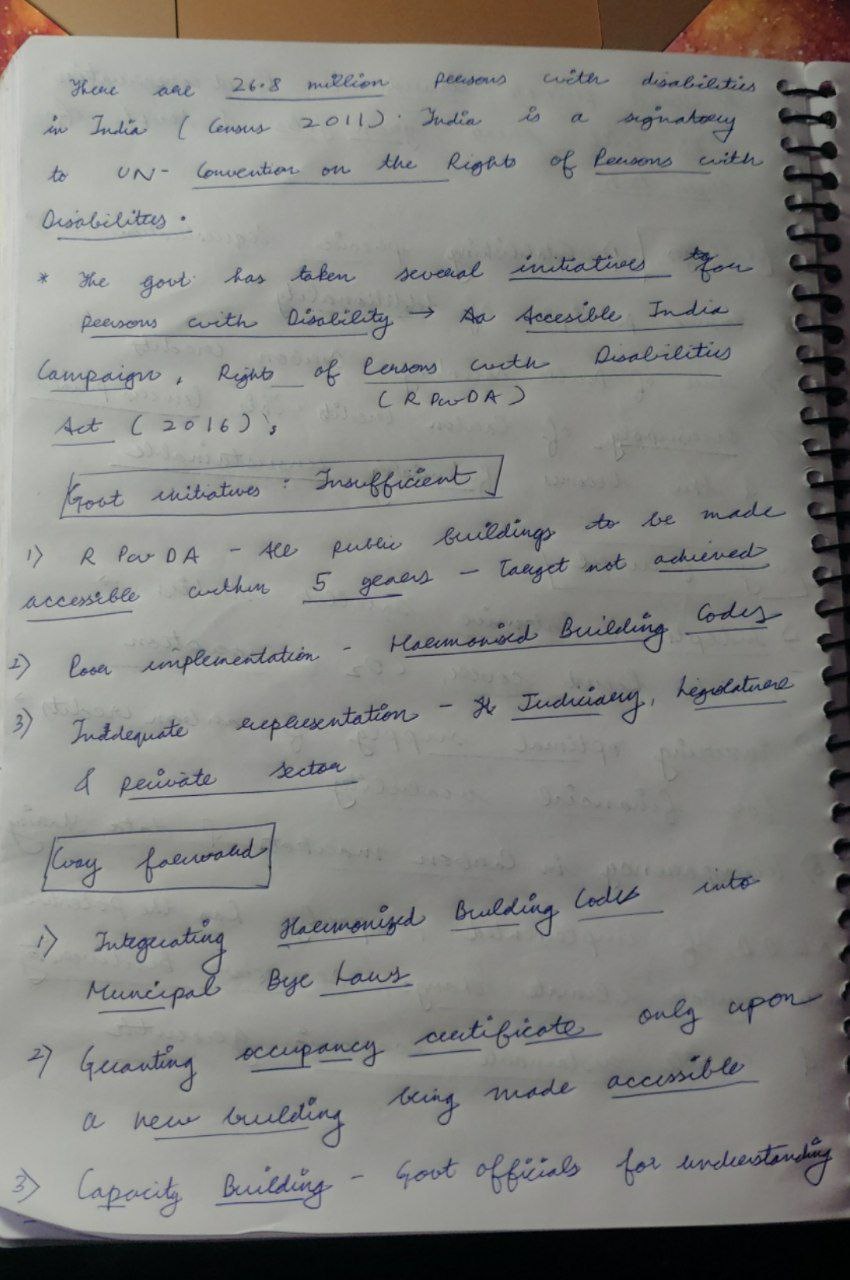 There are 26.8 million persons with disabilities
in India (Census 2011). India is a signatory
to UN- Convention on the Rights of Persons with
Disabilities.
* The govt has taken several initiatives for
Persons with Disability → Accesible India
Campaign, Rights of Persons with Disabilities
(RPwDA)
Act (2016),
Govt initiatives : Insufficient
1) RPwDA - All public buildings to be made
accessible within 5 years - Target not achieved
2) Poor implementation - Harmonised Building Codes
3) Inadequate representation - Judiciary, Legislature
& private sector
Way forward
1) Integrating Harmonized Building Codes into
Muncipal Bye Laws
2) Granting occupancy certificate only upon
a new building being made accessible
3) Capacity Building - Govt officials for understanding